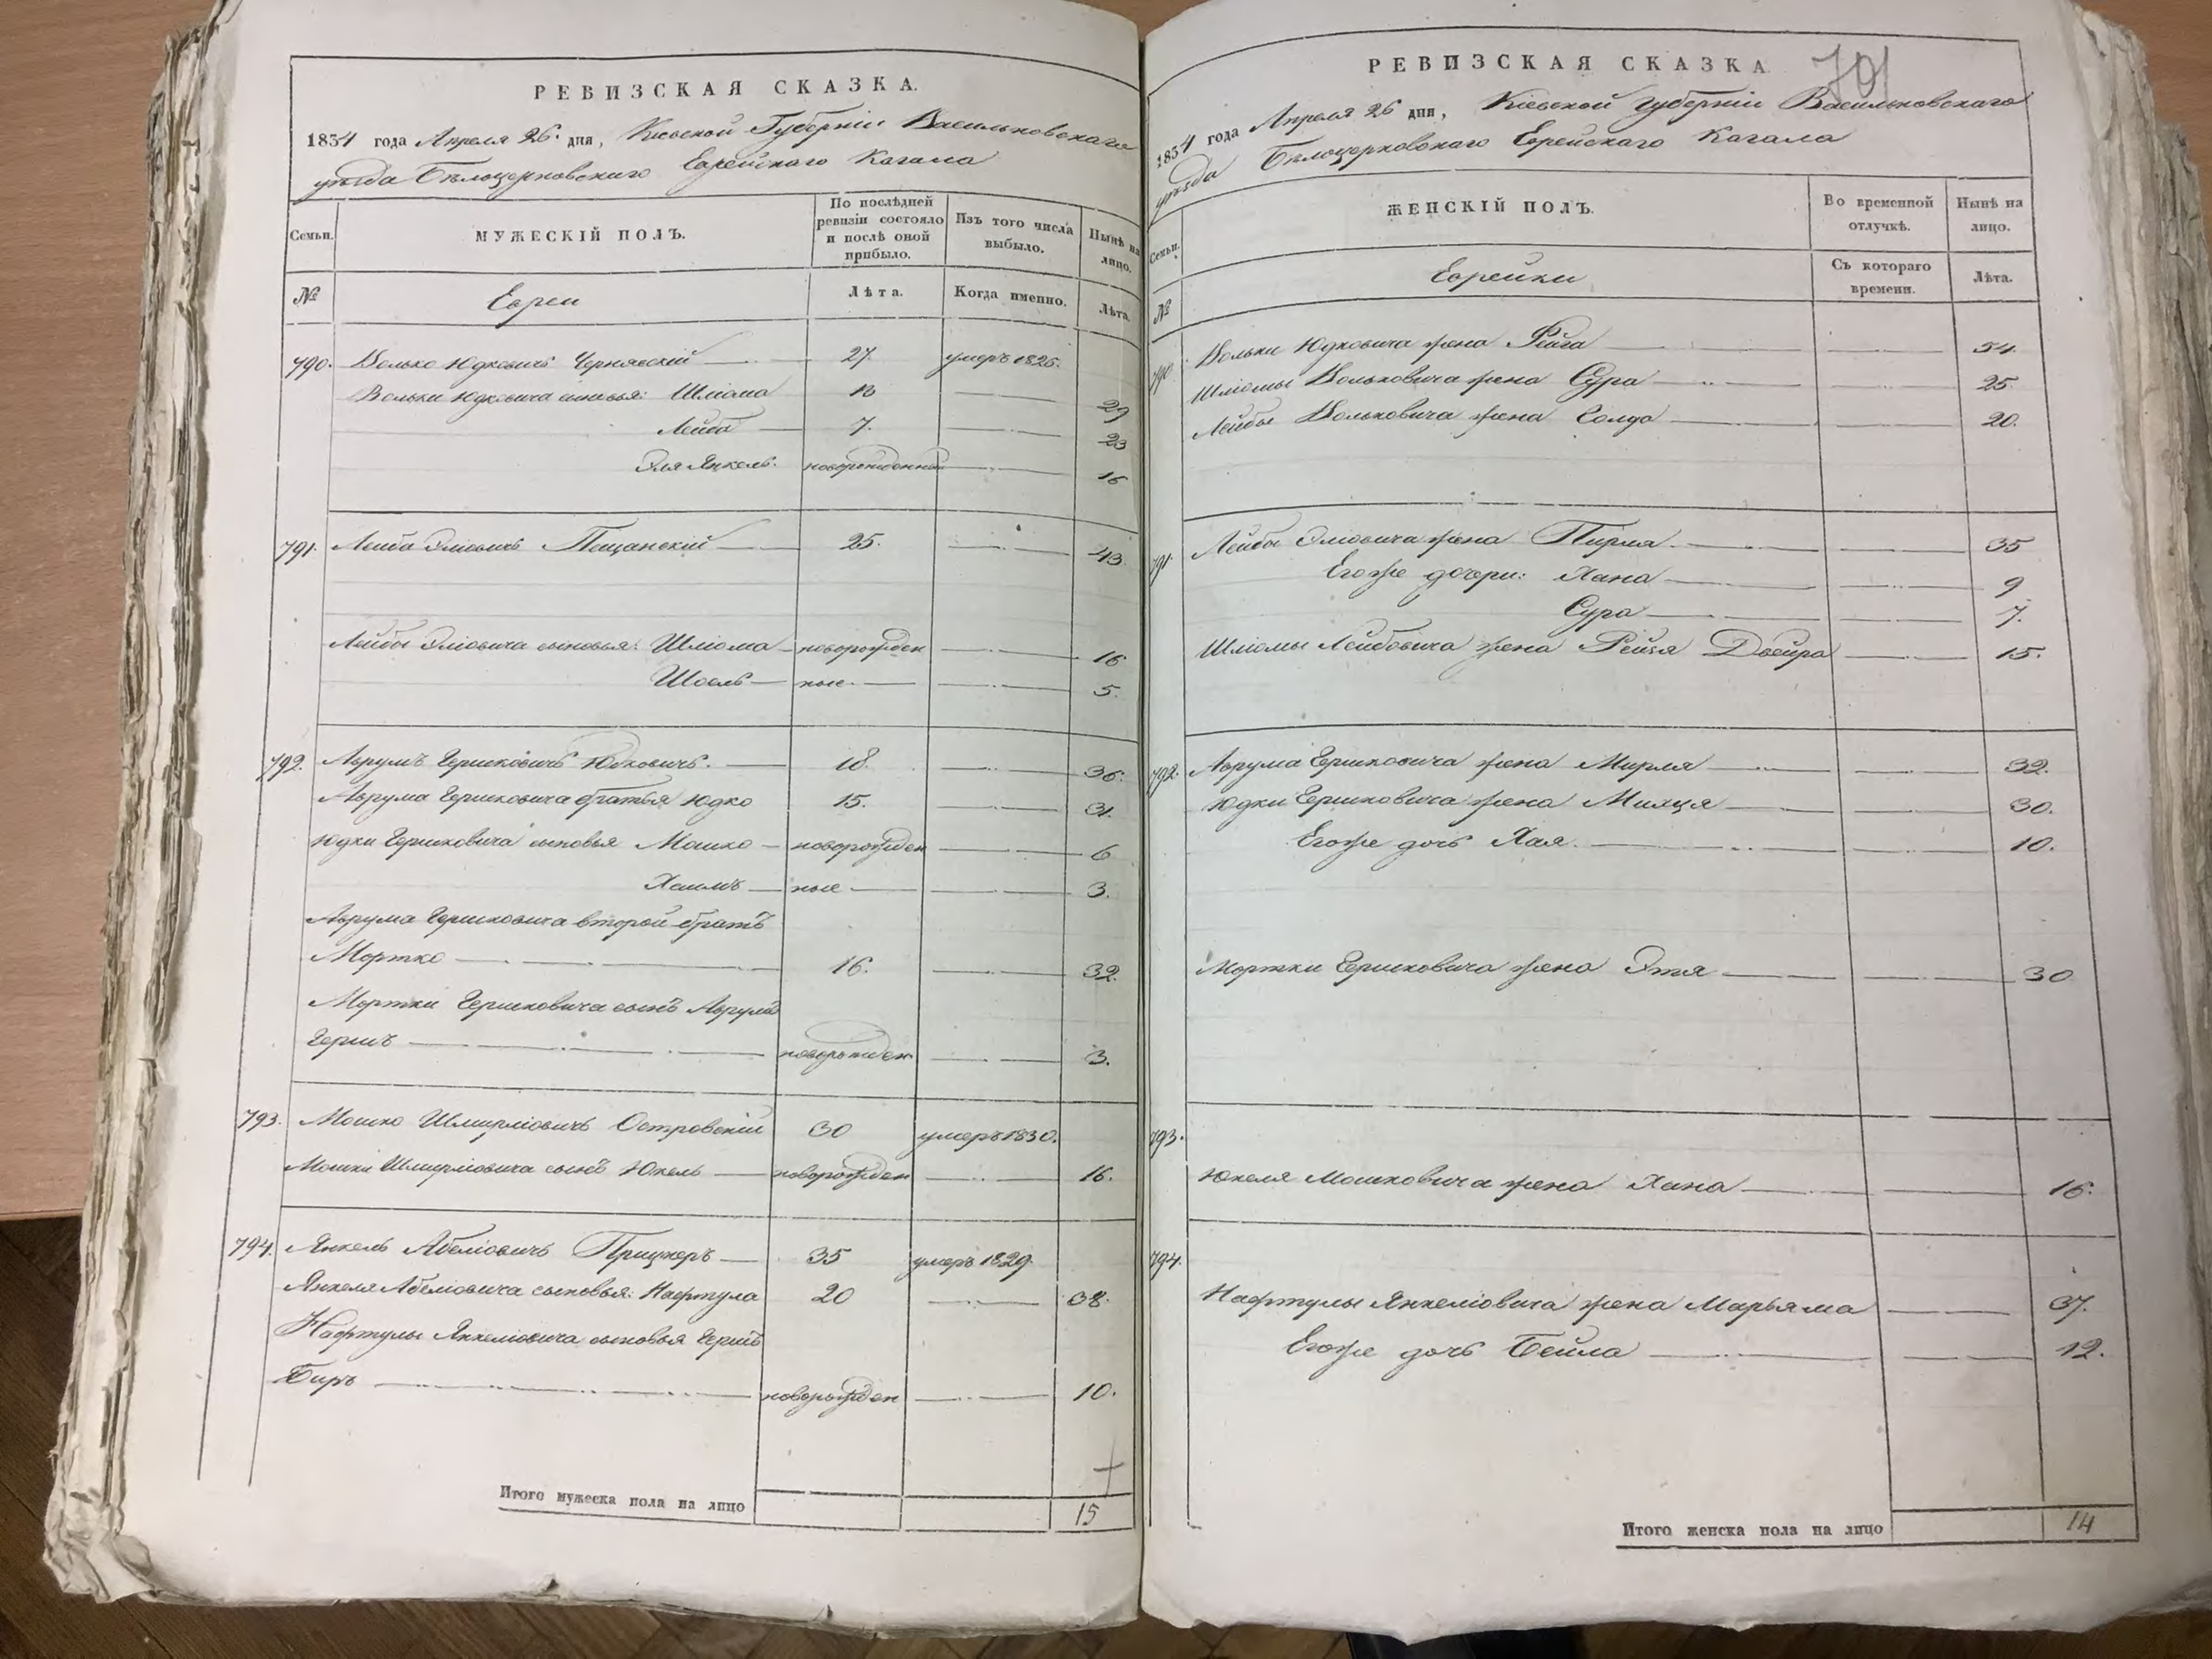 РЕВИЗСКАЯ СКАЗКА.
1834 года Апреля 26. дня, Кіевской Губерніи Васильковскаго
уѣзда Бѣлоцерковскаго Еврейскаго Кагала
Семьи.
МУЖЕСКІЙ ПОЛЪ.
По послѣдней ревизіи состояло и послѣ оной прибыло.
Изъ того числа выбыло.
Нынѣ на лицо.
№
Евреи
Лѣта.
Когда именно.
Лѣта.
790. Волько Юдковичъ Чернявскій 27. умеръ 1825.
Вольки Юдковича сыновья: Шліома 13 29
Лейба 7. 23
Эля Янкель. новорожденный 16
791. Лейба Эліовичъ Пещанскій 25. 43.
Лейбы Эліовича сыновья: Шліома новорожден 16
Шоель ные. 5.
792. Аврумъ Гершковичъ Юдковичъ. 18. 36.
Аврума Гершковича братья Юдко 15. 31.
Юдки Гершковича сыновья Мошко новорожден 6
Хаимъ ные 3.
Аврума Гершковича второй братъ
Мортко 16. 32.
Мортки Гершковича сынъ Аврумъ
Гершъ новорожден 3.
793. Мошко Шмирліовичъ Островскій 30 умеръ 1830.
Мошки Шмирліовича сынъ Юкель новорожден 16.
794. Янкель Абеліовичъ Прицкеръ 35 умеръ 1829.
Янкеля Абеліовича сыновья: Нафтула 20 38.
Нафтулы Янкеліовича сыновья Гершъ
Биръ новорожден 10.
Итого мужеска пола на лицо 15
РЕВИЗСКАЯ СКАЗКА
701
1834 года Апреля 26 дня, Кіевской Губерніи Васильковскаго
уѣзда Бѣлоцерковскаго Еврейскаго Кагала
Семьи.
ЖЕНСКІЙ ПОЛЪ.
Во временной отлучкѣ.
Нынѣ на лицо.
№
Еврейки
Съ котораго времени.
Лѣта.
790. Вольки Юдковича жена Рейза 54.
Шліомы Вольковича жена Сура 25.
Лейбы Вольковича жена Голда 20.
791. Лейбы Эліовича жена Пирля 35
Его же дочери: Хана 9
Сура 7.
Шліомы Лейбовича жена Рейзя Двейра 15.
792. Аврума Гершковича жена Мирля 32.
Юдки Гершковича жена Милця 30.
Его же дочь Хая. 10.
Мортки Гершковича жена Этя 30
793.
Юкеля Мошковича жена Хана 16.
794.
Нафтулы Янкеліовича жена Марьяма 37.
Его же дочь Бейла 12.
Итого женска пола на лицо 14